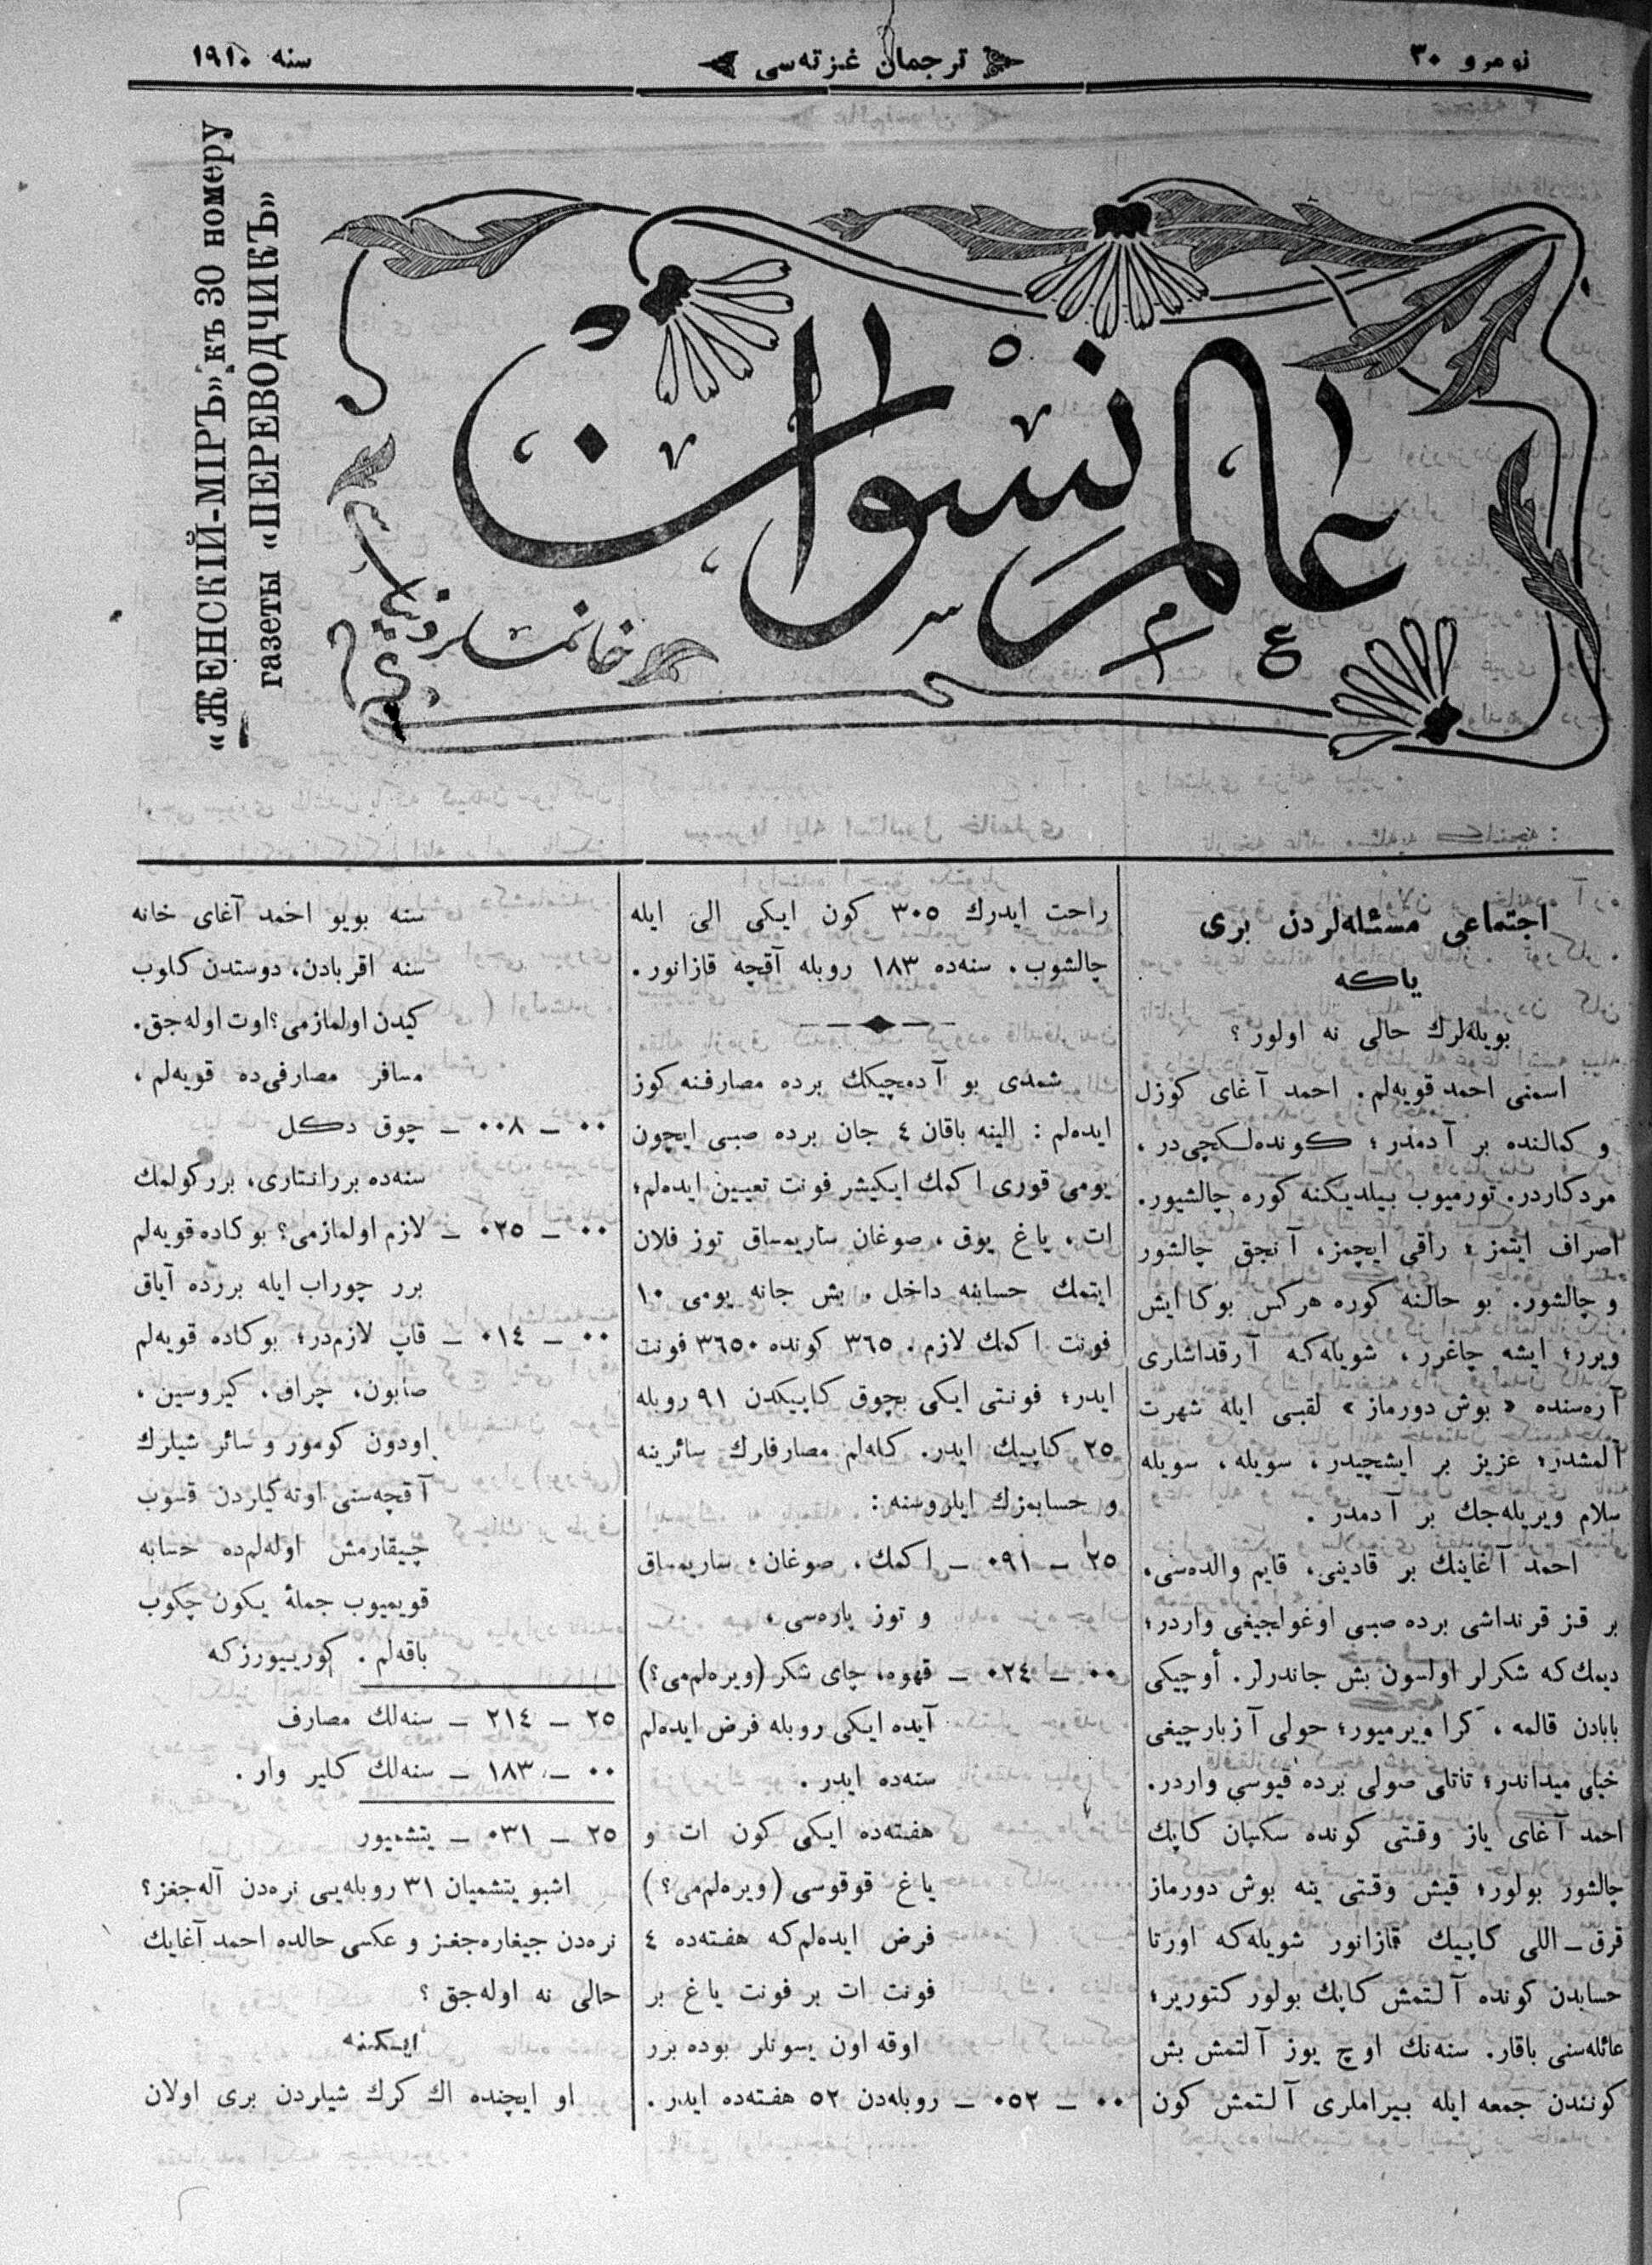 نومرو ٣٠
ترجمان غزته‌سی
سنه ١٩١٠
«ЖЕНСКІЙ-МІРЪ» къ 30 номеру
газеты «ПЕРЕВОДЧИКЪ»
عالم نسوان
خانملر دنیاسی
اجتماعی مسئله‌لردن بری
یاکه
بویله‌لرك حالی نه اولور ؟
اسمنی احمد قویه‌لم. احمد آغای كوزل
و كمالنده بر آدمدر ؛ كونده‌لكچی‌در ،
مردكاردر. تورمیوب بیلدیكنه كوره چالشیور.
اصراف ایتمز ؛ راقی ایچمز، آنجق چالشور
و چالشور. بو حالنه كوره هركس بوكا ایش
ویرر؛ ایشه چاغرر ، شویله‌كه آرقداشاری
آره‌سنده « بوش دورماز » لقبی ایله شهرت
آلمشدر؛ عزیز بر ایشچیدر ، سویله ، سویله
سلام ویریله‌جك بر آدمدر .
احمد آغاینك بر قادینی، قایم والده‌سی،
بر قز قرنداشی برده صبی اوغولجیغی واردر؛
دیمك كه شكرلر اولسون بش جاندرلر. أوجیكی
بابادن قالمه ، كرا ویرمیور؛ حولی آزبارچیغی
خیلی میداندر؛ تاتلی صولی برده قیوسی واردر.
احمد آغای یاز وقتی كونده سكسان كاپك
چالشور بولور؛ قیش وقتی ینه بوش دورماز
قرق ـ اللی كاپیك قازانور شویله‌كه اورتا
حسابدن كونده آلتمش كاپك بولور كتوریر؛
عائله‌سنی باقار. سنه‌نك اوچ یوز آلتمش بش
كونندن جمعه ایله بیراملری آلتمش كون
راحت ایدرك ٣٠٥ كون ایكی الی ایله
چالشوب. سنه‌ده ١٨٣ روبله آقچه قازانور.
شمدی بو آدمچیكك برده مصارفنه كوز
ایده‌لم : الینه باقان ٤ جان برده صبی ایچون
یومی قوری اكمك ایكیشر فونت تعیین ایده‌لم؛
ات ، یاغ یوق ، صوغان ساریمساق توز فلان
ایتمك حسابنه داخل . بش جانه یومی ١٠
فونت اكمك لازم. ٣٦٥ كونده ٣٦٥٠ فونت
ایدر؛ فونتی ایكی بچوق كاپیكدن ٩١ روبله
٢٥ كاپیك ایدر. كله‌لم مصارفارك سائرینه
و حسابمزك ایلروسنه :
٢٥ ـ ٠٩١ ـ اكمك ، صوغان ؛ ساریمساق
و توز پاره‌سی ،
٠٠ ـ ٠٢٤ ـ قهوه، چای شكر (ویره‌لم‌می؟)
آیده ایكی روبله فرض ایده‌لم
سنه‌ده ایدر .
هفته‌ده ایكی كون ات و
یاغ قوقوسی (ویره‌لم‌می؟ )
فرض ایده‌لم‌كه هفته‌ده ٤
فونت ات بر فونت یاغ بر
اوقه اون یسونلر بوده برر
٠٠ ـ ٠٥٢ ـ روبله‌دن ٥٢ هفته‌ده ایدر .
سنه بویو احمد آغای خانه
سنه اقربادن، دوستدن كلوب
كیدن اولمازمی؟ اوت اوله‌جق.
مسافر مصارفی‌ده قویه‌لم ،
٠٠ ـ ٠٠٨ ـ چوق دكل
سنه‌ده بررانتاری، برركولمك
٠٠ ـ ٠٢٥ ـ لازم اولمازمی؟ بوكاده قویه‌لم
برر چوراب ایله برزده آیاق
٠٠ ـ ٠١٤ ـ قاپ لازم‌در؛ بوكاده قویه‌لم
صابون، چراق، كیروسین ،
اودون كومور و سائر شیلرك
آقچه‌سنی اوته‌كیلردن قسوب
چیقارمش اوله‌لم‌ده حسابه
قویمیوب جملۀ یكون چكوب
باقه‌لم . كورییورزكه
٢٥ ـ ٢١٤ ـ سنه‌لك مصارف
٠٠ ـ ١٨٣ ـ سنه‌لك كلیر وار .
٢٥ ـ ٠٣١ ـ یتشمیور
اشبو یتشمیان ٣١ روبله‌یی نره‌دن آله‌جغز؟
نره‌دن جیغاره‌جغز و عكسی حالده احمد آغایك
حالی نه اوله‌جق ؟
ایسكنه
او ایچنده اك كرك شیلردن بری اولان